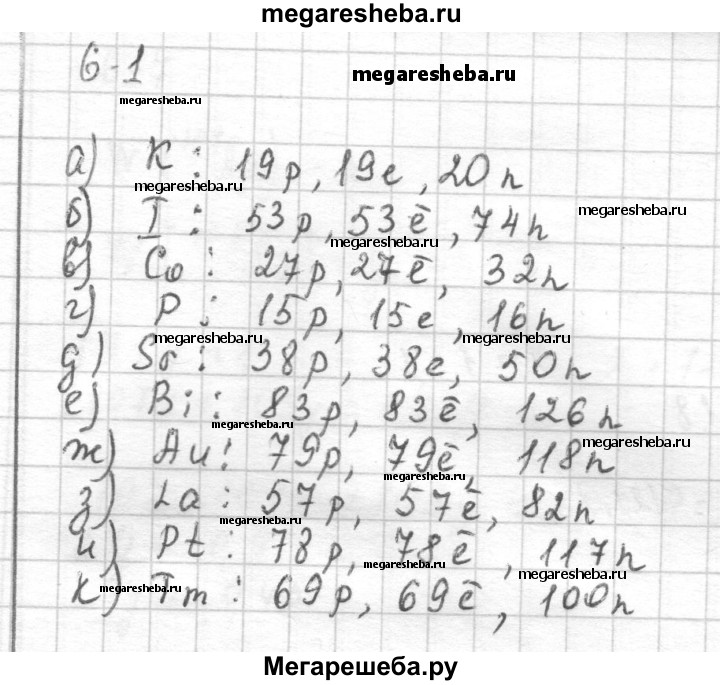 megaresheba.ru
6-1
megaresheba.ru
megaresheba.ru
а) K : 19p, 19e, 20n
megaresheba.ru
б) I : 53p, 53ē, 74n
megaresheba.ru
megaresheba.ru
в) Co : 27p, 27ē, 32n
г) P : 15p, 15e, 16n
megaresheba.ru
megaresheba.ru
д) Sr : 38p, 38e, 50n
е) Bi : 83p, 83ē, 126n
megaresheba.ru
megaresheba.ru
ж) Au : 79p, 79ē, 118n
з) La : 57p, 57ē, 82n
megaresheba.ru
и) Pt : 78p, 78ē, 117n
megaresheba.ru
megaresheba.ru
megaresheba.ru
к) Tm : 69p, 69ē, 100n
Мегарешеба.ру